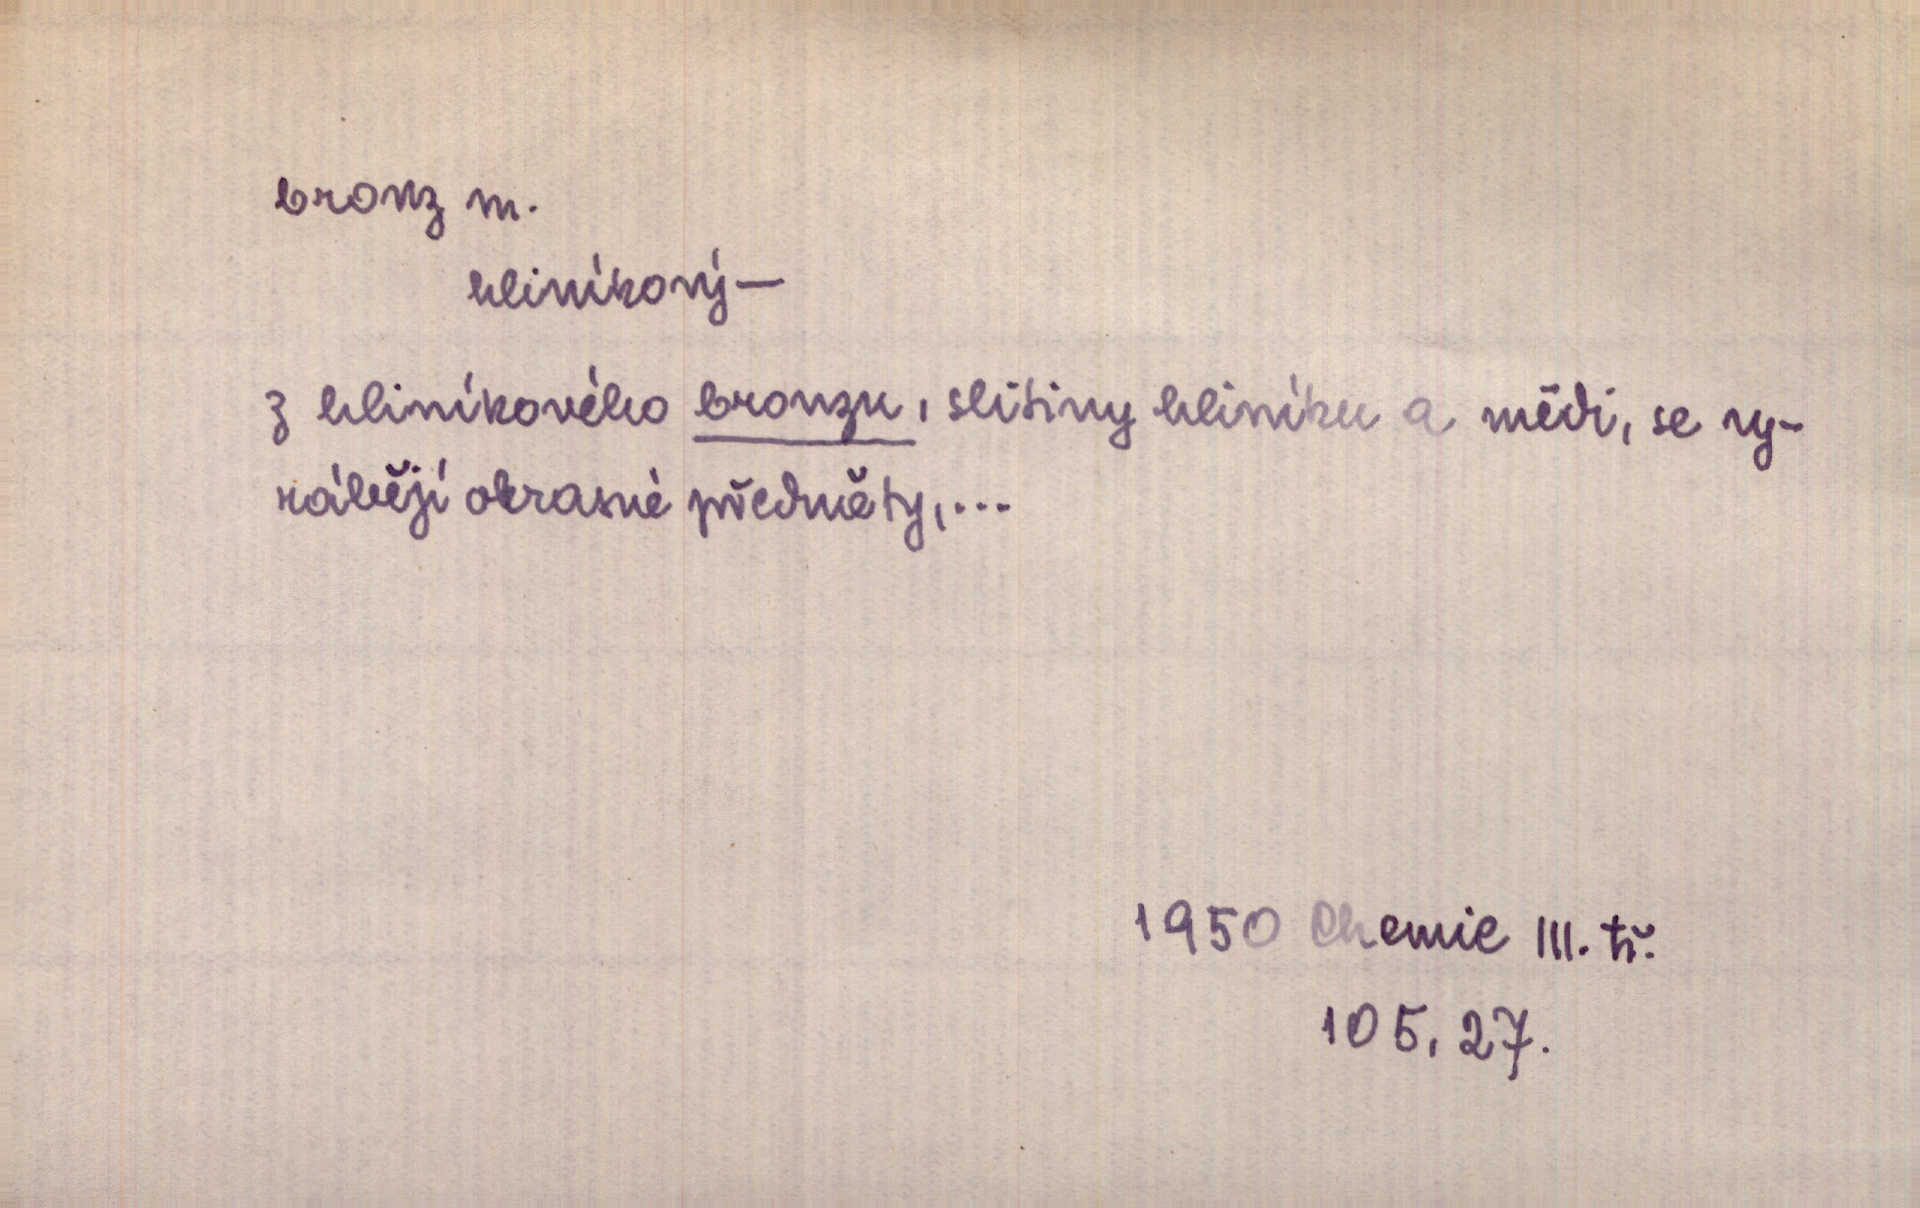 bronz m.
hliníkový —
z hliníkového bronzu, slitiny hliníku a mědi, se vy-
rábějí okrasné předměty,...
1950 Chemie III. tř.
105, 27.